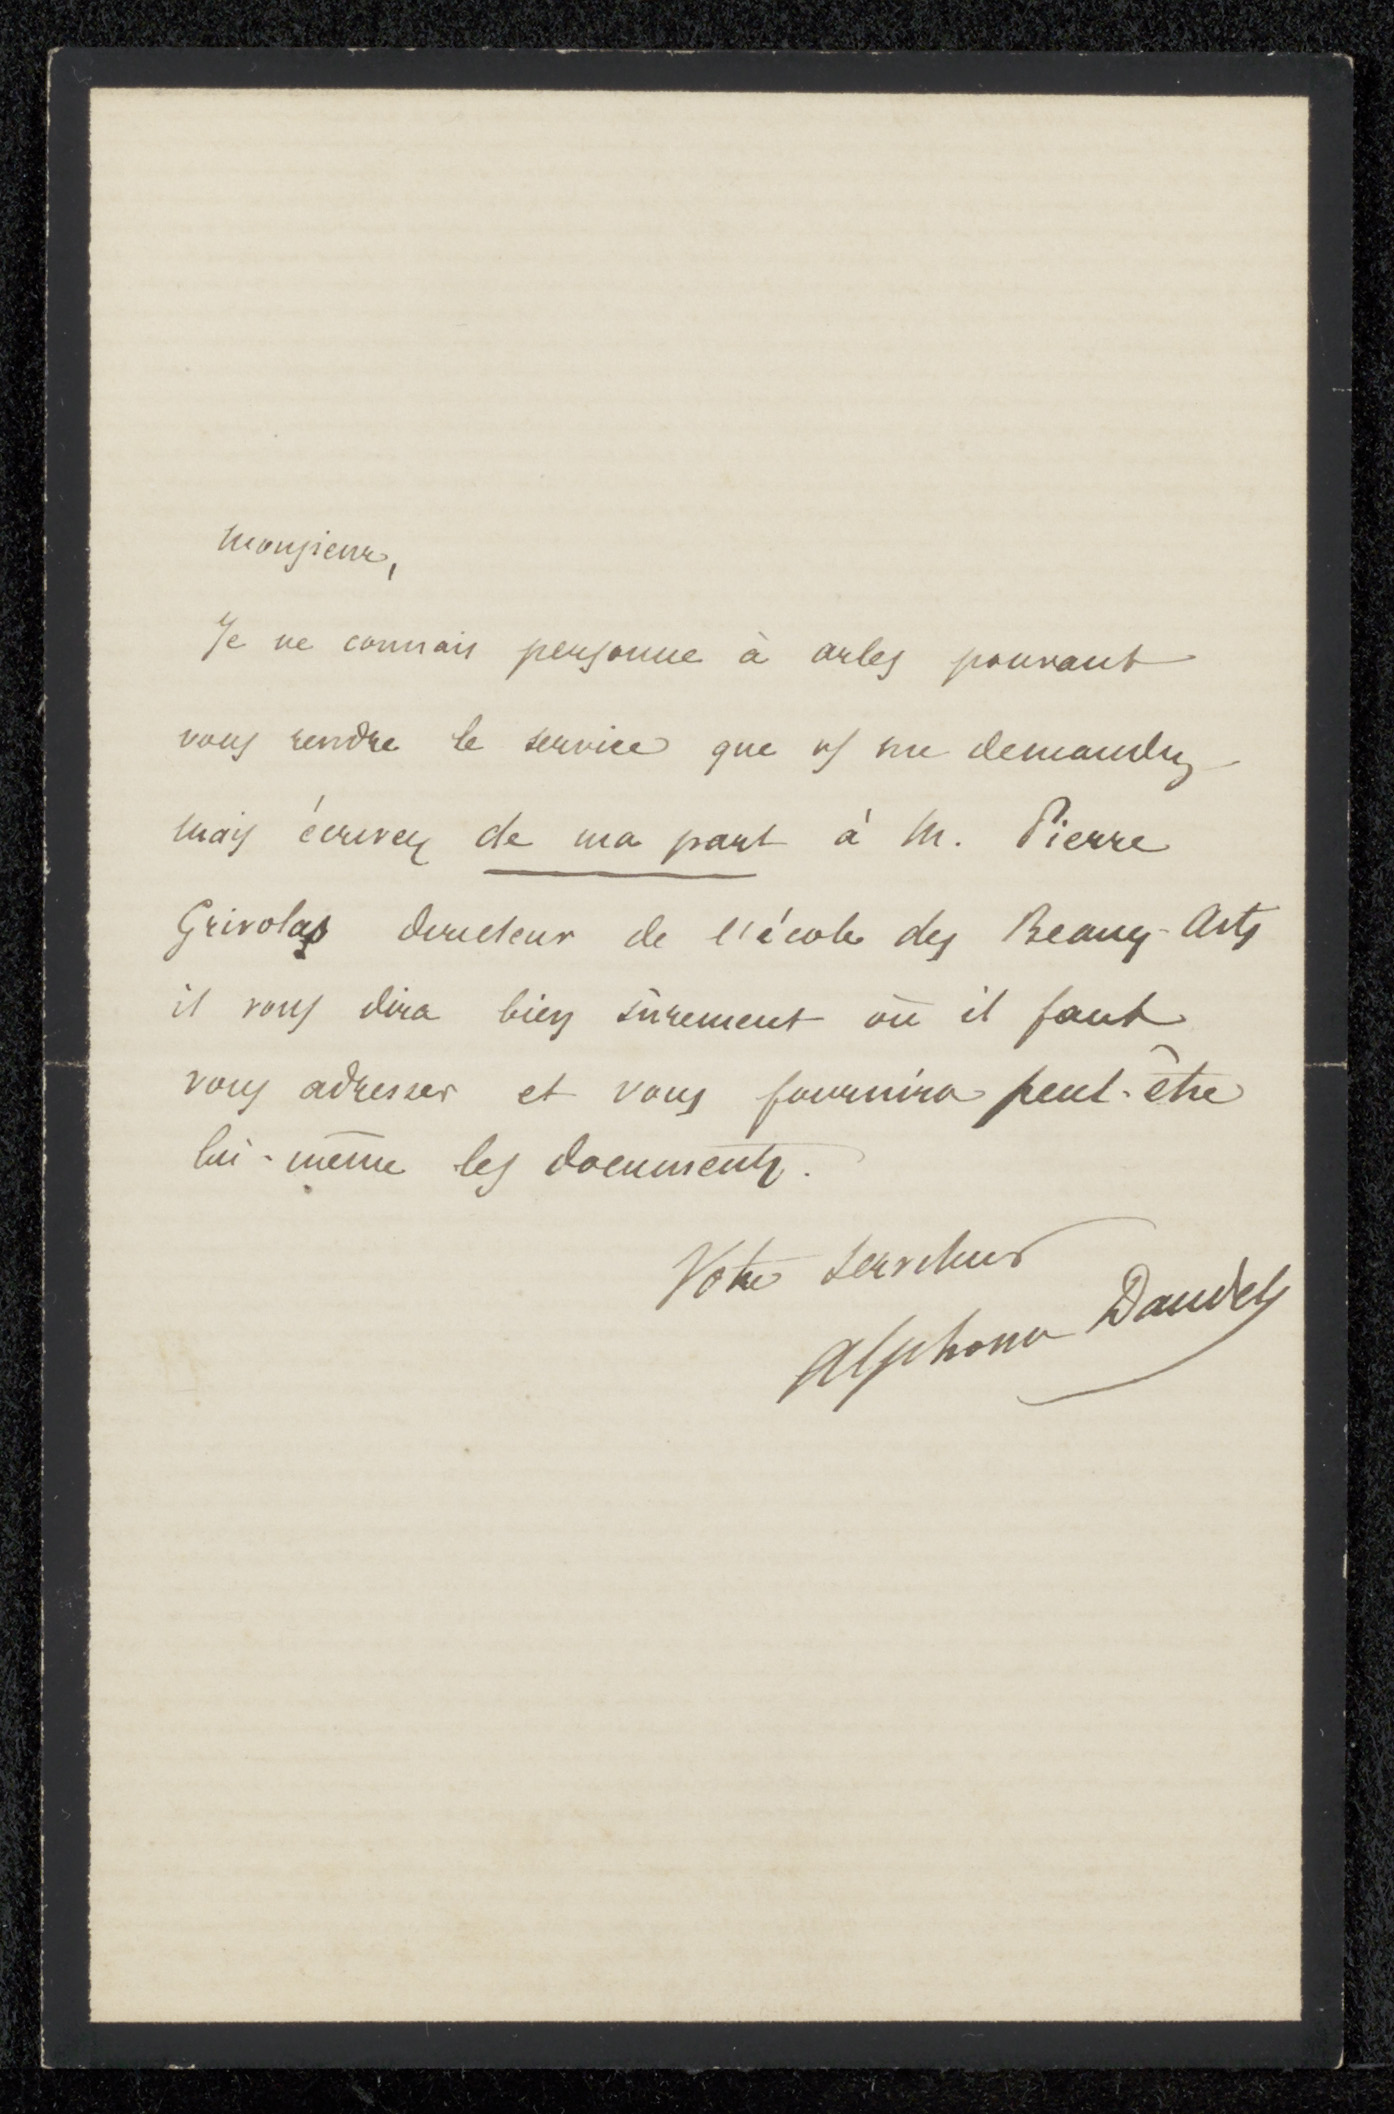 Monsieur,
Je ne connais personne à arles pouvant
vous rendre le service que vs me demandez
mais écrivez de ma part à M. Pierre
Grivolas directeur de l'école des Beaux-Arts
il vous dira bien sûrement où il faut
vous adresser et vous fournira peut-être
lui-même les documents.
Votre serviteur
Alphonse Daudet